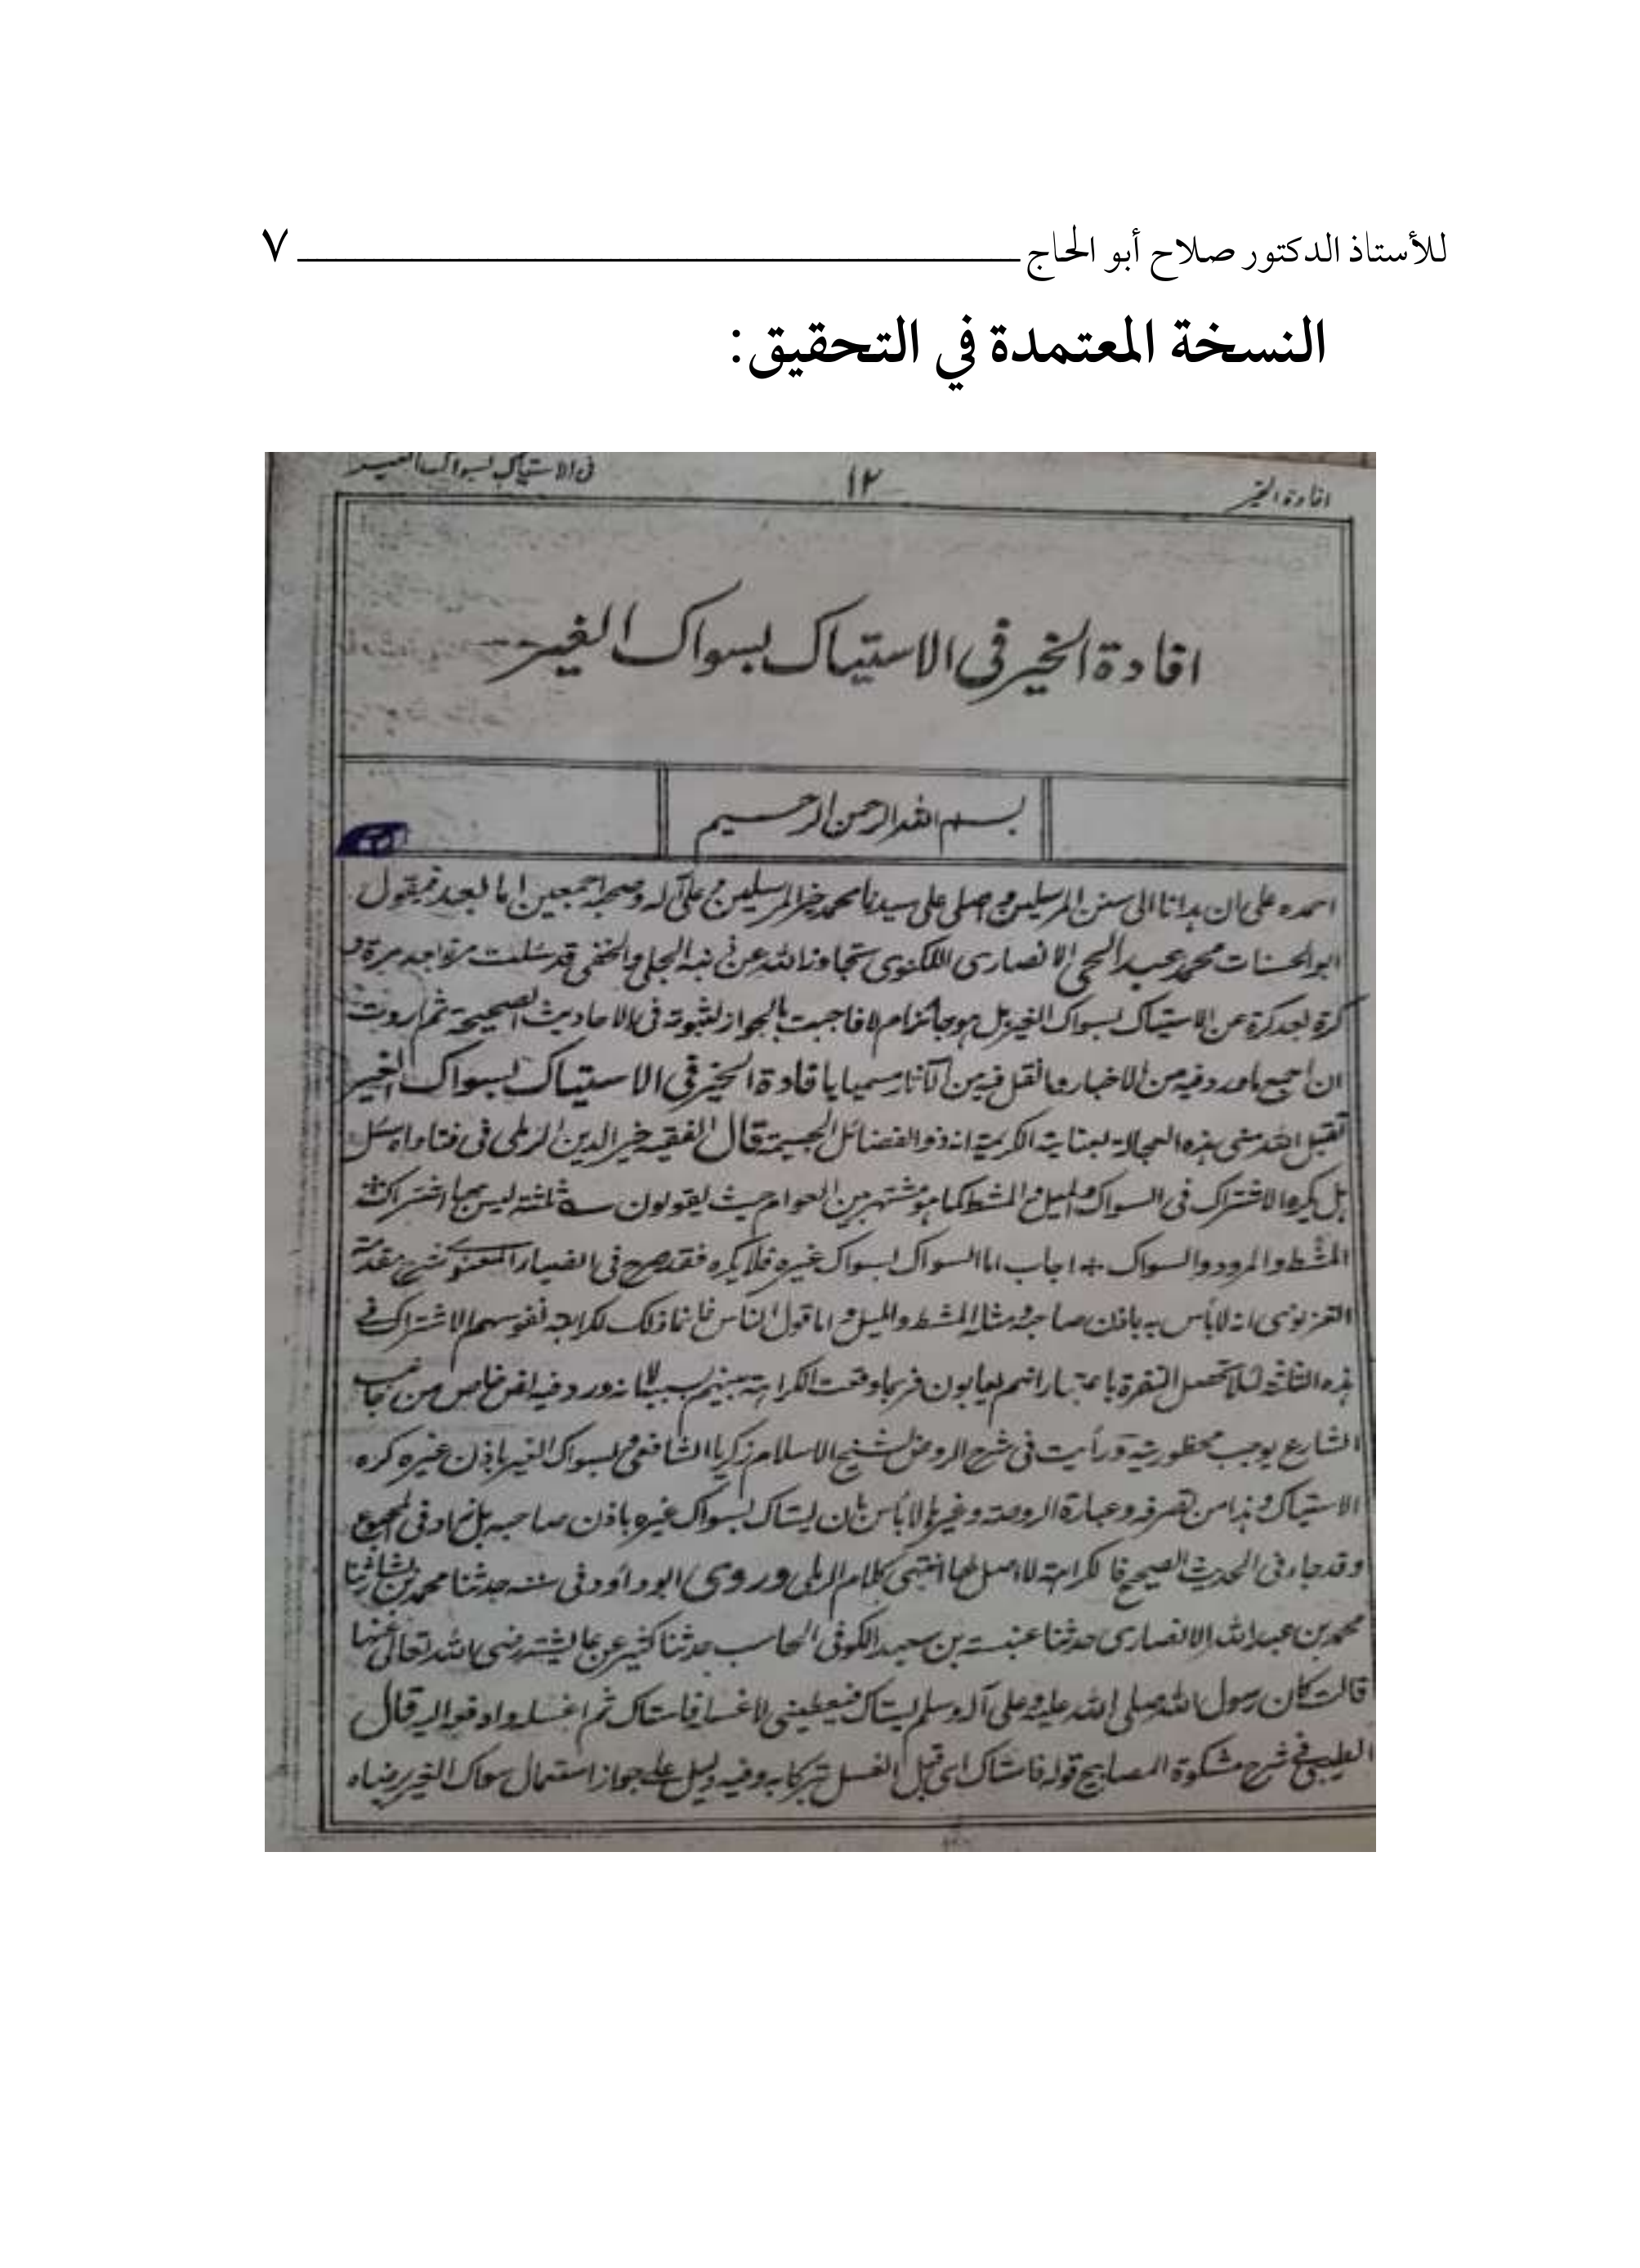 للأستاذ الدكتور صلاح أبو الحاج ٧
النسخة المعتمدة في التحقيق:
افادة الخير ١٢ فى الاستياك بسواك الغير
افادة الخير فى الاستياك بسواك الغير
بسم الله الرحمن الرحيم
احمده على ان هدانا الى سنن المرسلين و اصلى على سيدنا محمد خير المرسلين و على آله وصحبه اجمعين اما بعد فيقول
ابو الحسنات محمد عبد الحى الانصارى اللكنوى تجاوز الله عن ذنبه الجلى والخفى قد سئلت مرة بعد مرة و
كرة بعد كرة عن الاستياك بسواك الغير هل هو جائز ام لا فاجبت بالجواز لثبوته فى الاحاديث الصحيحة ثم اردت
ان اجمع ما ورد فيه من الاخبار وما نقل فيه من الآثار مسميا بافادة الخير فى الاستياك بسواك الغير
تقبل الله منى هذه العجالة بعنايته الكريمة انه ذو الفضائل الجسيمة قال الفقيه خير الدين الرملى فى فتاواه سئل
هل يكره الاشتراك فى السواك والميل والمشط كما هو مشتهر بين العوام حيث يقولون ثلثة ليس بها اشتراك
المشط والمرود والسواك + اجاب اما السواك بسواك غيره فلا يكره فقد صرح فى الضياء المعنوى شرح مقدمة
الغزنوى انه لا بأس به باذن صاحبه ومثله المشط والميل و اما قول الناس فانما ذلك لكراهة نفوسهم الاشتراك فى
هذه الثلثة لئلا تحصل النفرة باعتبار انهم يعابون فربما وقعت الكراهة بينهم بسببه لا انه ورد فيه نص خاص من جانب
الشارع يوجب محظوريته ورأيت فى شرح الروض لشيخ الاسلام زكريا الشافعى وبسواك الغير باذن غيره كره
الاستياك وهذا من تصرفه وعبارة الروضة وغيرها لا بأس ان يستاك بسواك غيره باذن صاحبه بل زاد فى المجموع
وقد جاء فى الحديث الصحيح فالكراهة لا اصل لها انتهى كلام الرملى وروى ابو داؤد فى سننه حدثنا محمد بن بشار ثنا
محمد بن عبد الله الانصارى حدثنا عنبسة بن سعيد الكوفى الحاسب حدثنا كثير عن عايشة رضى الله تعالى عنها
قالت كان رسول الله صلى الله عليه وعلى آله وسلم يستاك فيعطينى لاغسله فاستاك ثم اغسله وادفعه اليه قال
الطيبى فى شرح مشكوة المصابيح قوله فاستاك اى قبل الغسل تبركا به وفيه دليل على جواز استعمال سواك الغير برضاه